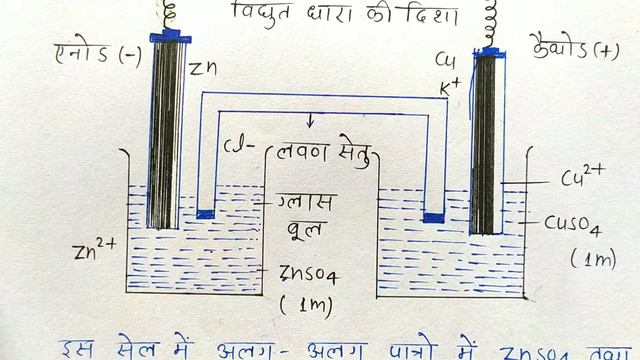 विद्युत धारा की दिशा
एनोड (-)
Zn
Cu
कैथोड (+)
K+
Cl-
लवण सेतु
Cu2+
ग्लास
वूल
CuSO4
(1m)
Zn2+
ZnSO4
(1m)
इस सेल में अलग-अलग पात्रो में ZnSO4 तथा